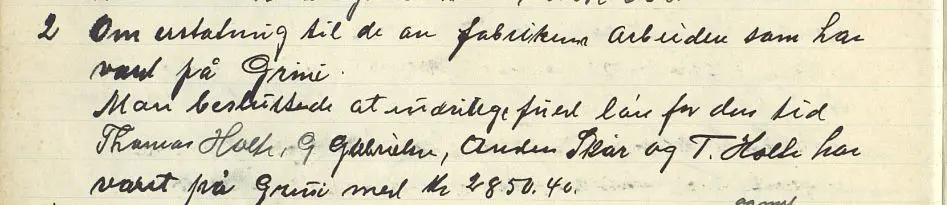 2 Om erstatning til de av fabrikens arbeidere som har
vært på Grini.
Man besluttede at utbetale full lön for den tid
Thomas Holte, G Gabrielsen, Anders Skår og T. Holte har
været på Grini med Kr 2850.40.